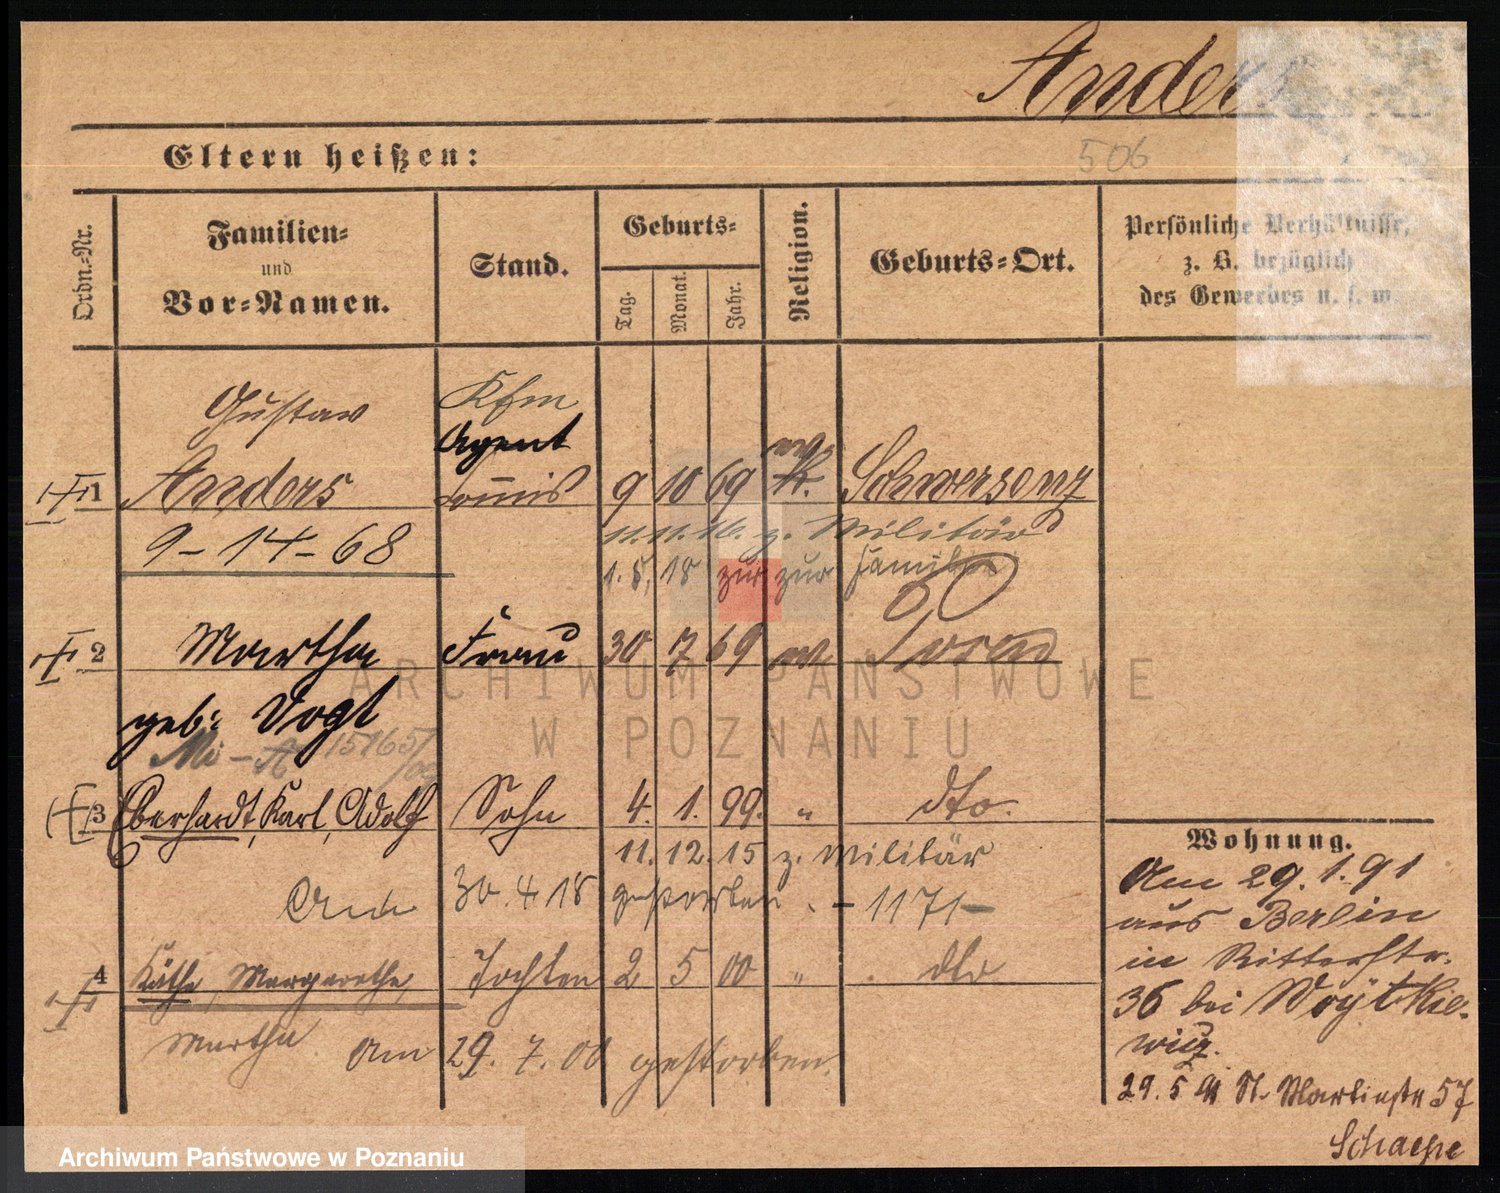 Anders
506
Eltern heißen:
Ordn.-Nr.
Familien-
und
Vor-Namen.
Stand.
Geburts-
Tag.
Monat.
Jahr.
Religion.
Geburts-Ort.
Persönliche Verhältnisse,
z. B. bezüglich
des Gewerbes u. s. w.
Gustav
Kfm
Agent
1 Anders Commis 9 10 69 ev. Schwersenz
9-14-68
11. 11. 16. z. Militär
1. 5. 18 zur zur Familie
2 Martha Frau 30 7 69 ev. Posen
geb: Vogt
3 Eberhardt, Karl, Adolf Sohn 4. 1. 99. " dto.
11. 12. 15 z. Militär
Am 30. 4 18 gestorben. -1171-
4 Käthe, Margarethe, Tochter 2 5 00 " dto
Martha am 29. 7. 00 gestorben.
Wohnung.
Am 29. 1. 91
aus Berlin
in Ritterstr.
36 bei Woytkie-
wicz.
29. 5 91 St. Martinstr 57
Schaepe
ARCHIWUM PAŃSTWOWE
W POZNANIU
Archiwum Państwowe w Poznaniu